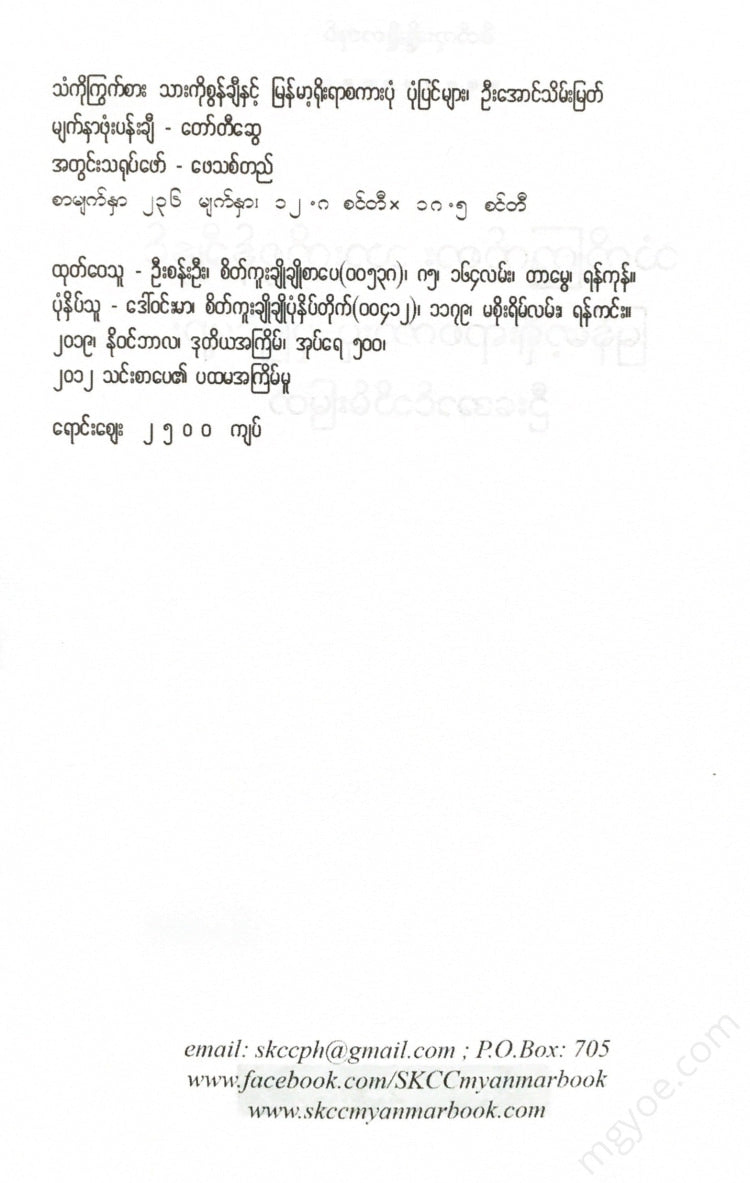 သံကိုကြွက်စား သားကိုစွန်ချီနှင့် မြန်မာ့ရိုးရာစကားပုံ ပုံပြင်များ၊ ဦးအောင်သိမ်းမြတ်
မျက်နှာဖုံးပန်းချီ - တော်တီဆွေ
အတွင်းသရုပ်ဖော် - ဖေသစ်တည်
စာမျက်နှာ ၂၃၆ မျက်နှာ၊ ၁၂.၈ စင်တီ× ၁၈.၅ စင်တီ
ထုတ်ဝေသူ - ဦးစန်းဦး၊ စိတ်ကူးချိုချိုစာပေ(၀၀၅၃၈)၊ ၈၅၊ ၁၆၄လမ်း၊ တာမွေ၊ ရန်ကုန်။
ပုံနှိပ်သူ - ဒေါ်ဝင်းမာ၊ စိတ်ကူးချိုချိုပုံနှိပ်တိုက်(၀၀၄၁၂)၊ ၁၁၇၉၊ မစိုးရိမ်လမ်း၊ ရန်ကင်း။
၂၀၁၉၊ နိုဝင်ဘာလ၊ ဒုတိယအကြိမ်၊ အုပ်ရေ ၅၀၀၊
၂၀၁၂ သင်းစာပေ၏ ပထမအကြိမ်မူ
ရောင်းဈေး ၂၅၀၀ ကျပ်
email: skccph@gmail.com ; P.O.Box: 705
www.facebook.com/SKCCmyanmarbook
www.skccmyanmarbook.com
mgyoe.com